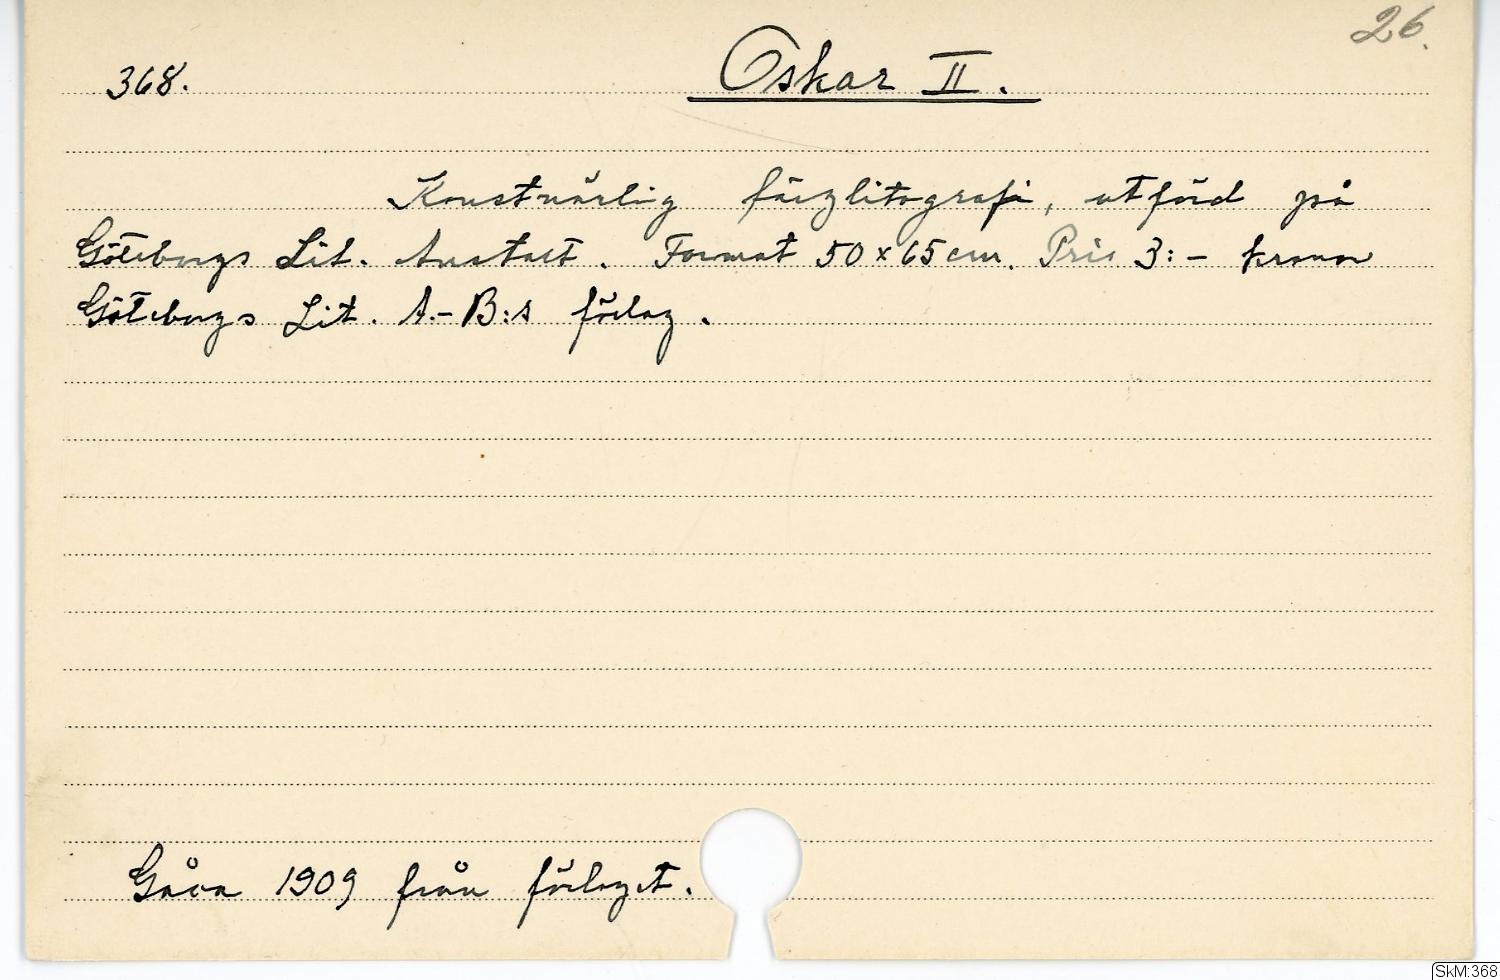 26.
368. Oskar II.
Konstnärlig färglitografi, utförd på
Göteborgs Lit. Anstalt. Format 50 x 65 cm. Pris 3:- kronor
Göteborgs Lit. A.-B:s förlag.
Gåva 1909 från förlaget.
SkM:368